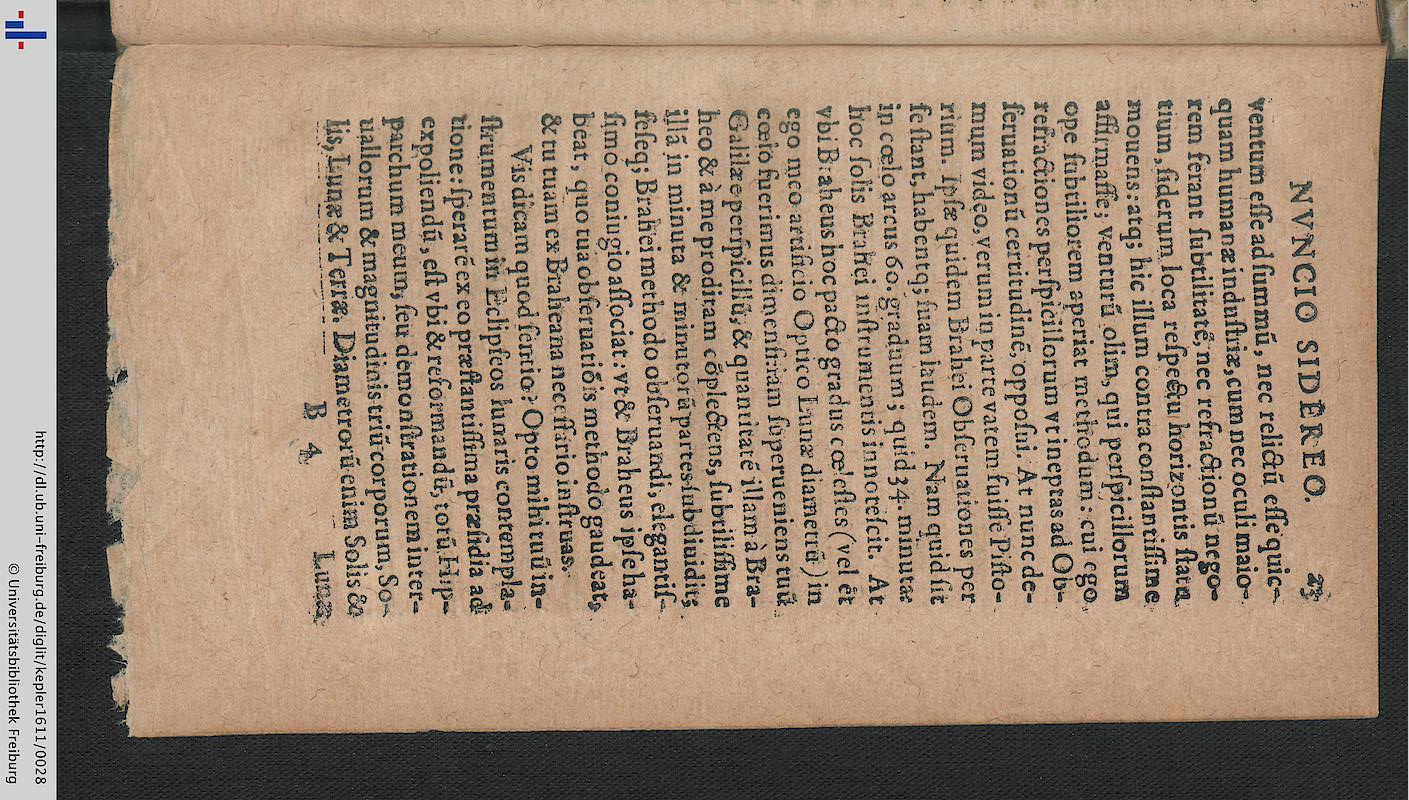 NVNCIO SIDEREO. 23
ventum eſſe ad ſummū, nec relictū eſſe quic-
quam humanæ induſtriæ, cum nec oculi maio-
rem ferant ſubtilitatē, nec refractionū nego-
tium, ſiderum loca reſpectu horizontis ſtatu
mouens: atq; hic illum contra conſtantiſſime
affirmaſſe; venturū olim, qui perſpicillorum
ope ſubtiliorem aperiat methodum: cui ego
refractiones perſpicillorum vt ineptas ad Ob-
ſeruationū certitudinē, oppoſui. At nunc de-
mum video, verum in parte vatem fuiſſe Piſto-
rium. Ipſæ quidem Brahei Obſeruationes per
ſe ſtant, habentq; ſuam laudem. Nam quid ſit
in cœlo arcus 60. graduum; quid 34. minuta:
hoc ſolis Brahei inſtrumentis innoteſcit. At
vbi Braheus hoc pacto gradus cœleſtes (vel ēt
ego meo artificio Optico Lunæ diametrū) in
cœlo fuerimus dimenſi: iam ſuperueniens tuū
Galilæe perſpicillū, & quantitatē illam à Bra-
heo & à me proditam cōplectens, ſubtiliſſime
illā in minuta & minutorū partes ſubdiuidit;
ſeſeq; Brahei methodo obſeruandi, elegantiſ-
ſimo coniugio aſſociat: vt & Braheus ipſe ha-
beat, quo tua obſeruatiōis methodo gaudeat,
& tu tuam ex Braheana neceſſario inſtruas.
Vis dicam quod ſentio? Opto mihi tuū in-
ſtrumentum in Eclipſeos lunaris contempla-
tione: ſperarē ex eo præſtantiſſima præſidia ad
expoliendū, eſt vbi & reformandū, totū Hip-
parchum meum, ſeu demonſtrationem inter-
uallorum & magnitudinis triū corporum, So-
lis, Lunæ & Terræ. Diametrorū enim Solis &
B 4 Lunæ
http://dl.ub.uni-freiburg.de/diglit/kepler1611/0028
© Universitätsbibliothek Freiburg